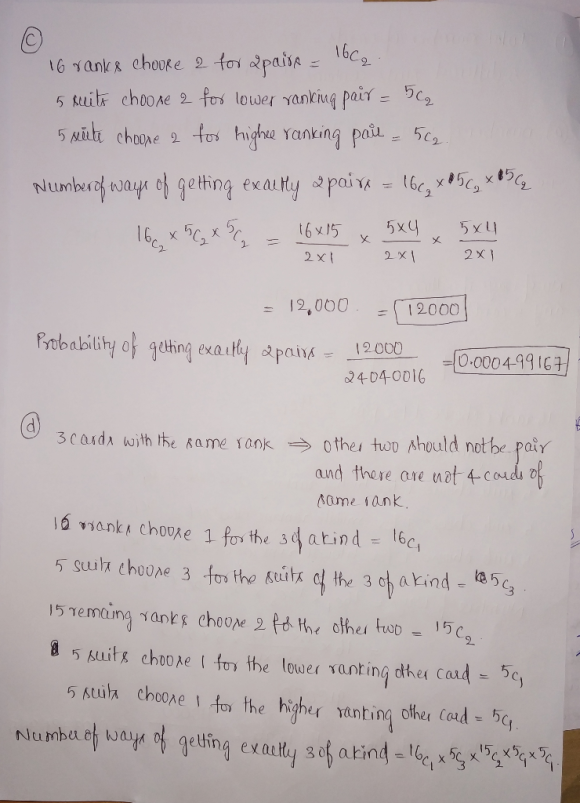 (c)
16 ranks choose 2 for 2pairs = 16C2.
5 suits choose 2 for lower ranking pair = 5C2
5 suits choose 2 for highee ranking pair = 5C2
Number of ways of getting exactly 2pairs = 16C2 × 5C2 × 5C2
16C2 × 5C2 × 5C2 = 16×15 / 2×1 × 5×4 / 2×1 × 5×4 / 2×1
= 12,000 = 12000
Probability of getting exactly 2pairs = 12000 / 24040016 = 0.000499167
(d)
3 cards with the same rank ⇒ other two should not be pair
and there are not 4 cards of
same rank.
16 ranks choose 1 for the 3 of a kind = 16C1
5 suits choose 3 for the suits of the 3 of a kind = 5C3
15 remaing ranks choose 2 for the other two = 15C2
5 suits choose 1 for the lower ranking other card = 5C1
5 suits choose 1 for the higher ranking other card = 5C1.
Number of ways of getting exactly 3 of a kind = 16C1 × 5C3 × 15C2 × 5C1 × 5C1